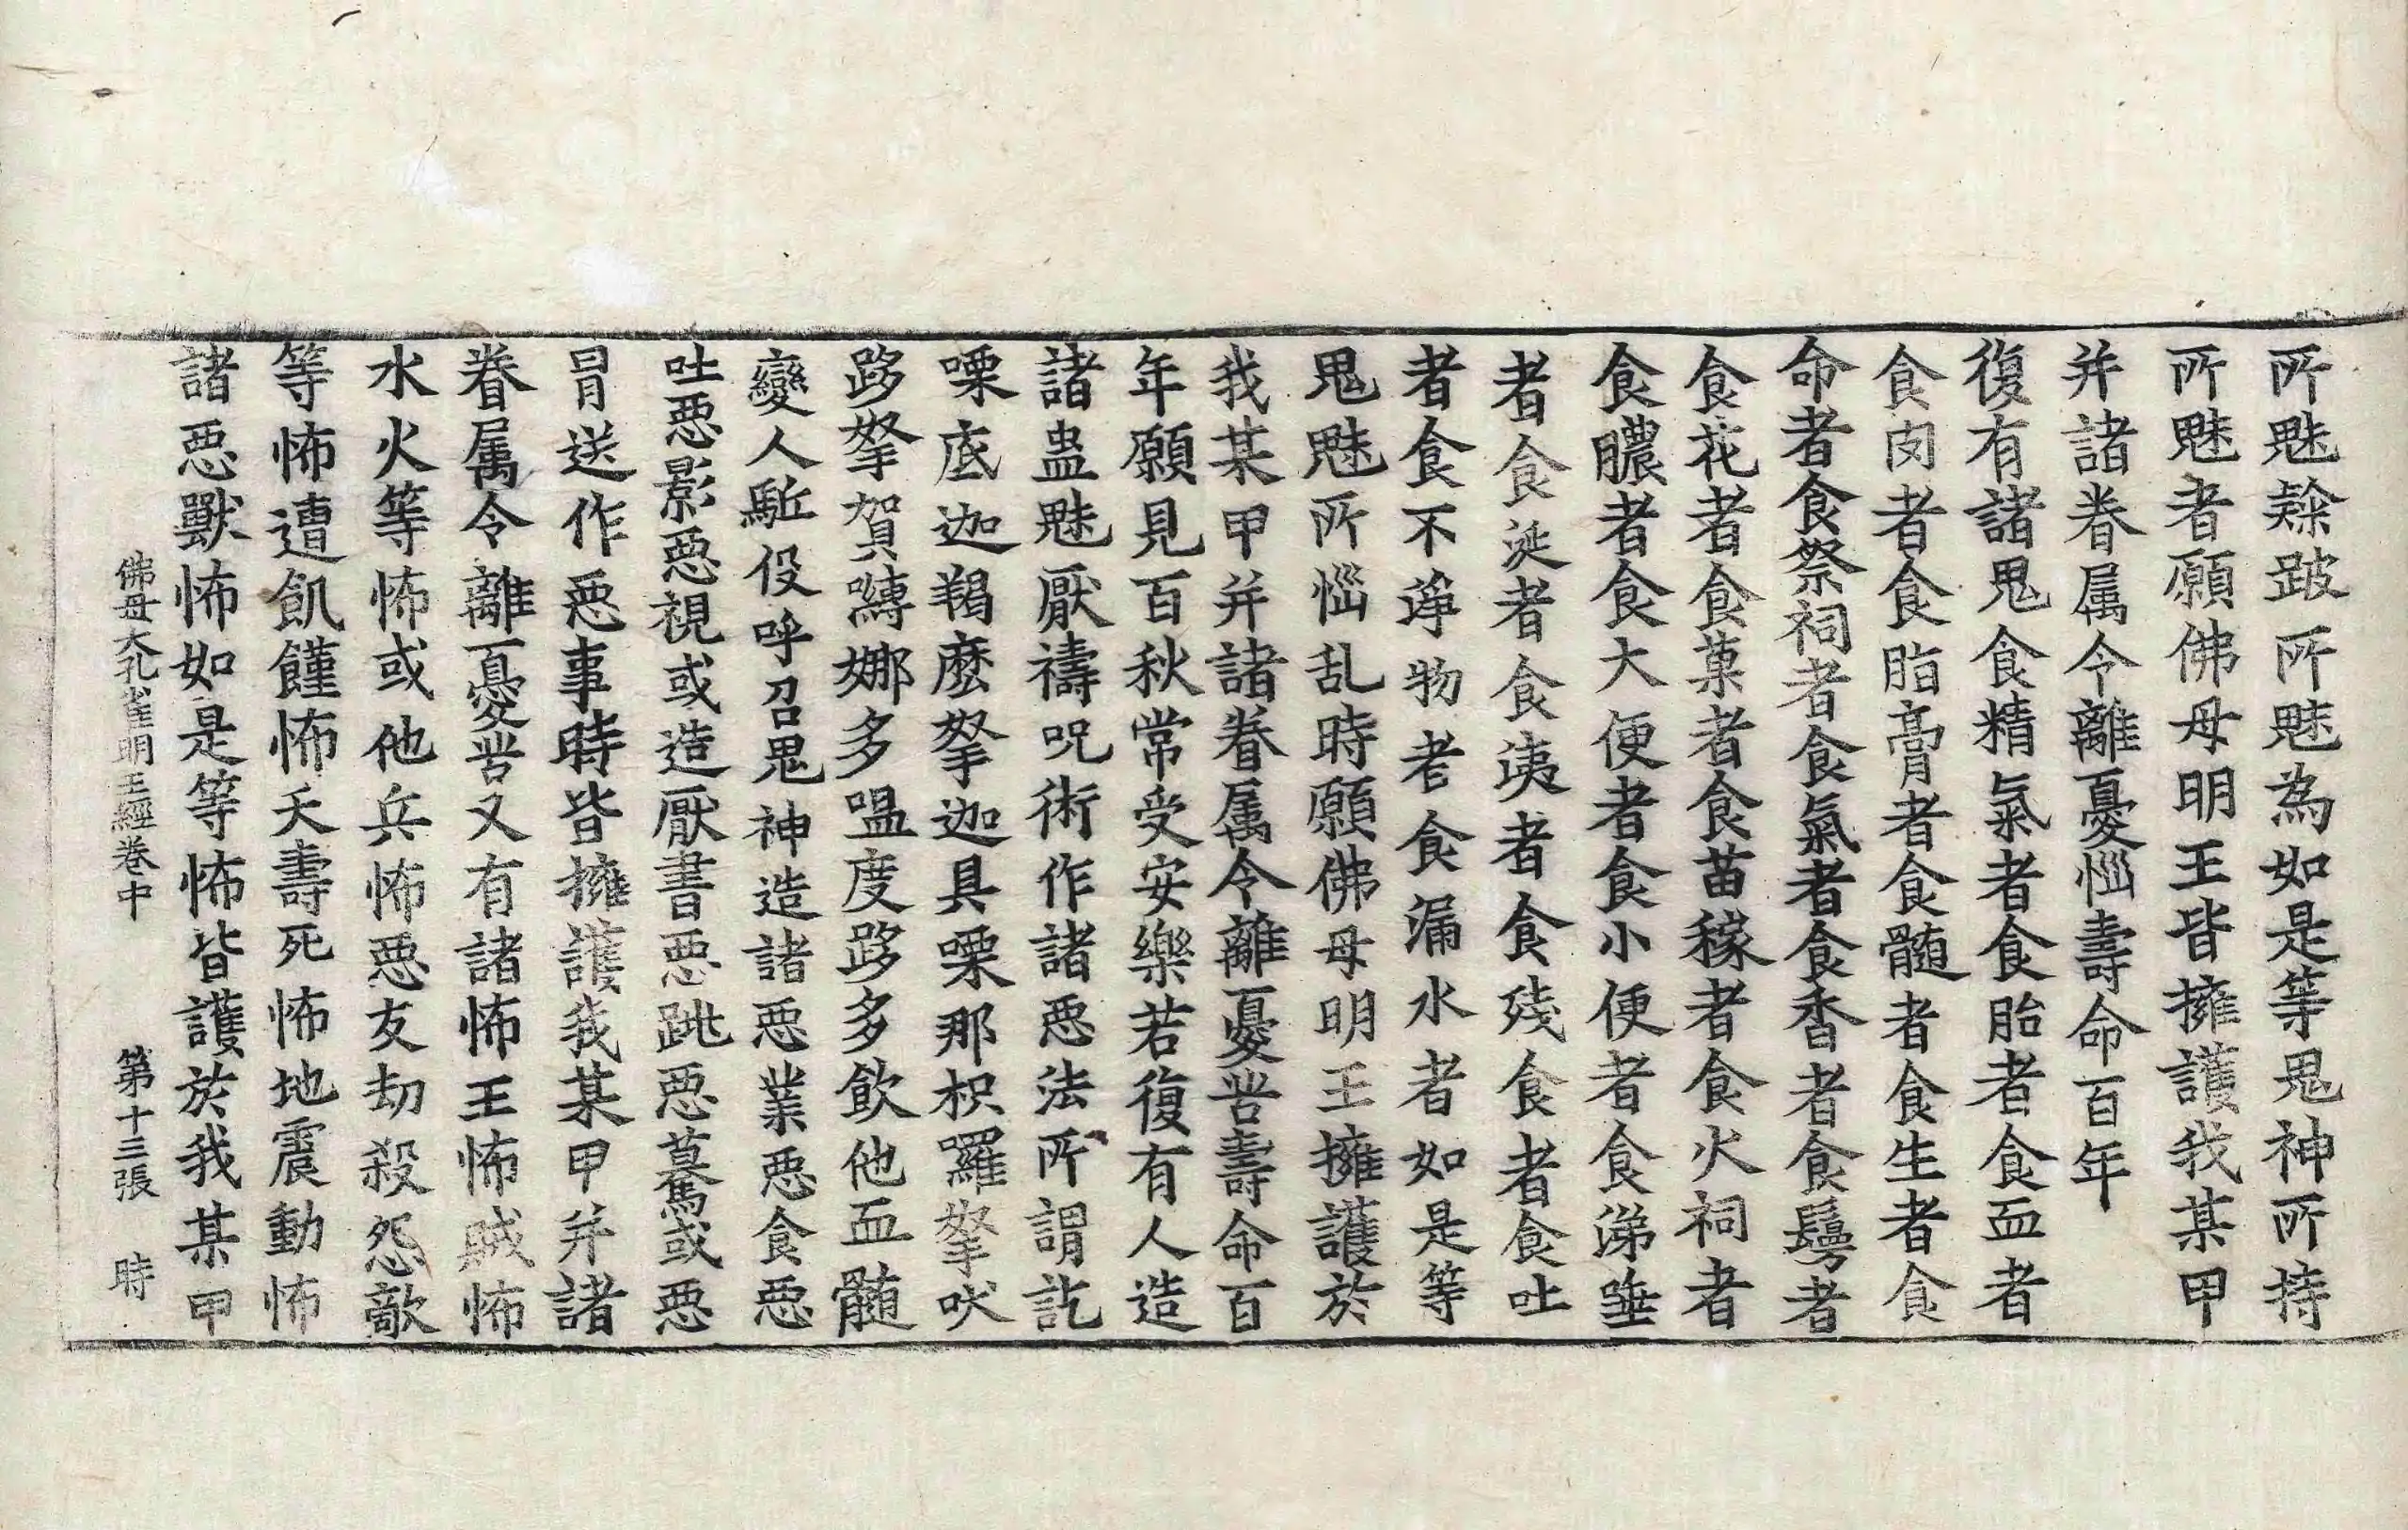 所魅𨄅跛所魅為如是等鬼神所持
所魅者願佛母明王皆擁護我某甲
并諸眷属令離憂惱壽命百年
復有諸鬼食精氣者食胎者食血者
食肉者食脂膏者食髓者食生者食
命者食祭祠者食氣者食香者食鬘者
食花者食菓者食苗稼者食火祠者
食膿者食大便者食小便者食涕唾
者食涎者食洟者食残食者食吐
者食不淨物者食漏水者如是等
鬼魅所惱乱時願佛母明王擁護於
我某甲并諸眷属令離憂苦壽命百
年願見百秋常受安樂若復有人造
諸蛊魅厭禱呪術作諸惡法所謂訖
㗚底迦羯麽拏迦具㗚那枳囉拏吠
跢拏賀嚩娜多嗢度跢多飲他血髓
變人駈役呼召鬼神造諸惡業惡食惡
吐惡影惡視或造厭書惡跳惡驀或惡
冐送作惡事時皆擁護我某甲并諸
眷属令離憂苦又有諸怖王怖賊怖
水火等怖或他兵怖惡友劫殺怨敵
等怖遭飢饉怖夭壽死怖地震動怖
諸惡獸怖如是等怖皆護於我某甲
佛母大孔雀明王經卷中 第十三張 時